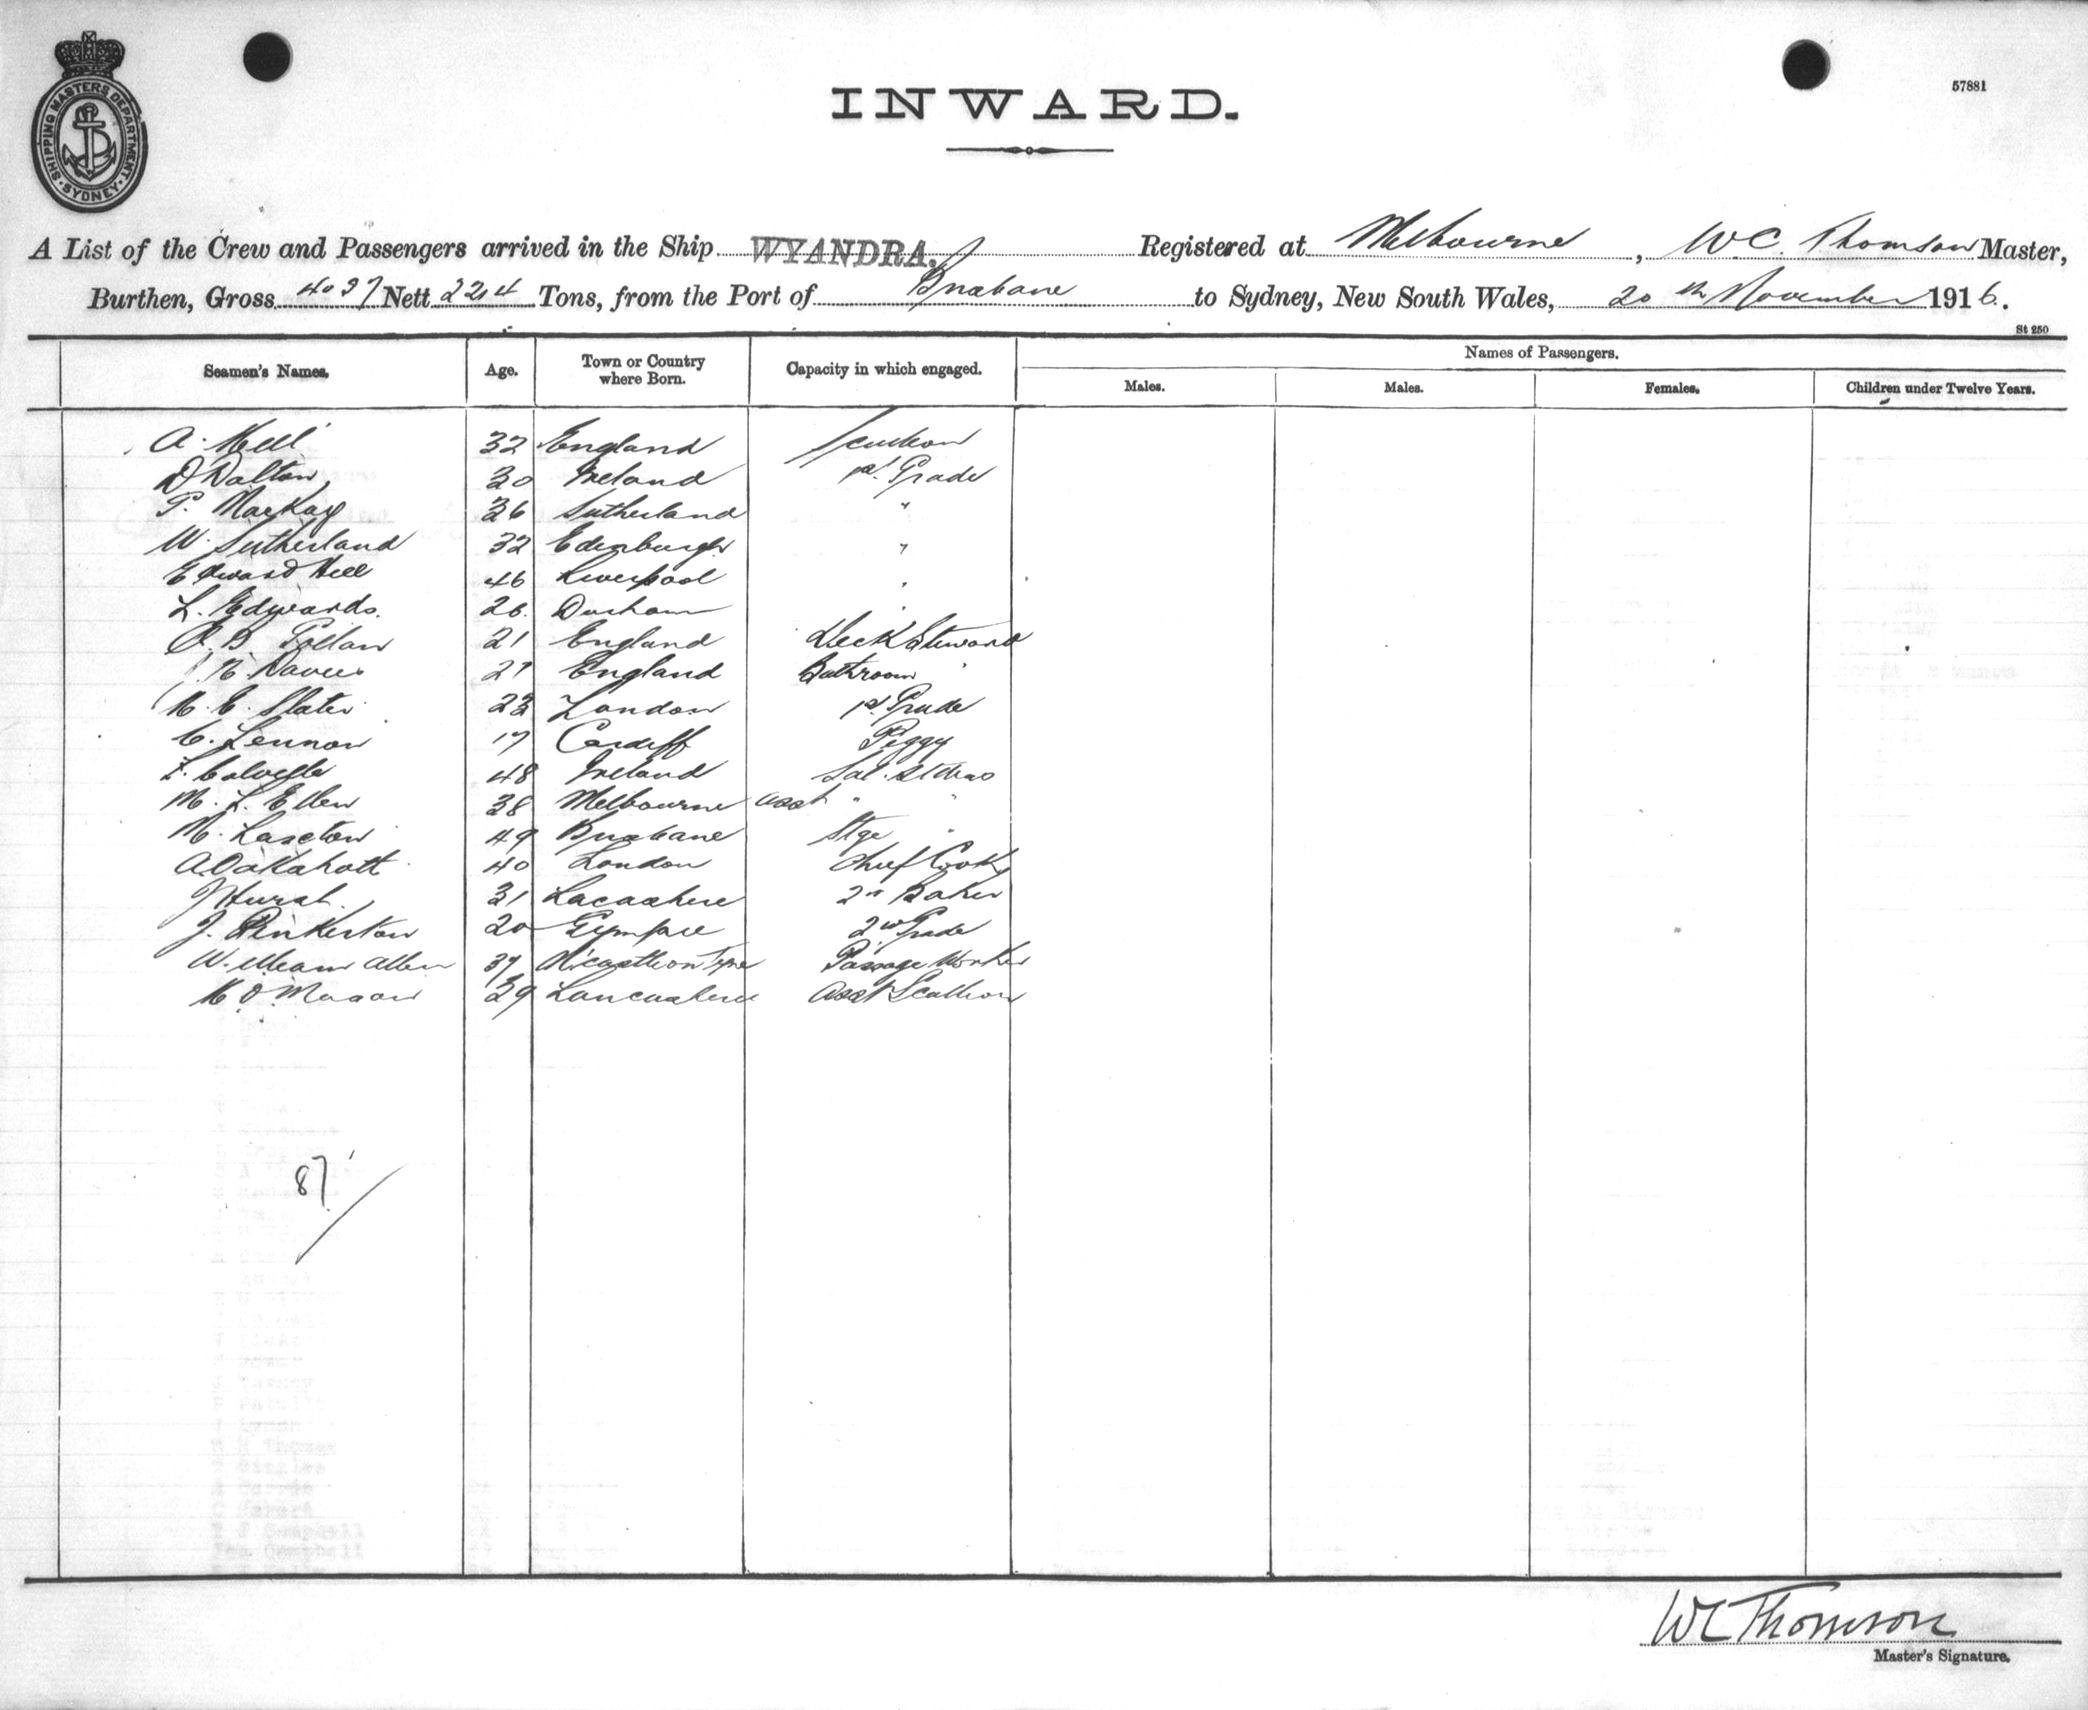 SHIPPING MASTERS DEPARTMENT. SYDNEY
57881
INWARD.
A List of the Crew and Passengers arrived in the Ship WYANDRA. Registered at Melbourne, W.C. Thomson Master,
Burthen, Gross 4037 Nett 2214 Tons, from the Port of Brisbane to Sydney, New South Wales, 20th November 1916.
St 250
Seamen's Names. Age. Town or Country where Born. Capacity in which engaged. Names of Passengers.
Males. Males. Females. Children under Twelve Years.
A. Hill 32 England Scullion
D Dalton 30 Ireland 1st Grade
P. Mackay 36 Sutherland "
W. Sutherland 32 Edenburgh "
Edward Hill 46 Liverpool "
L. Edwards. 26 Durham "
21 England Deck Steward
Davies 27 England Bathroom "
H. E. Slater 23 London 1st Grade
C. Lennon 17 Cardiff Peggy
48 Ireland Sal. Stdrss
M. L. Ellen 38 Melbourne Asst " "
M. 49 Brisbane Stge "
A Oakshott 40 London Chief Cook
J Hurst. 31 Lacashire 2nd Baker
J. Pinkerton 20 Gympie 2nd Grade
William Allen 37 Passage Worker
29 Lancashire Asst Scullion
87
WC Thomson
Master's Signature.